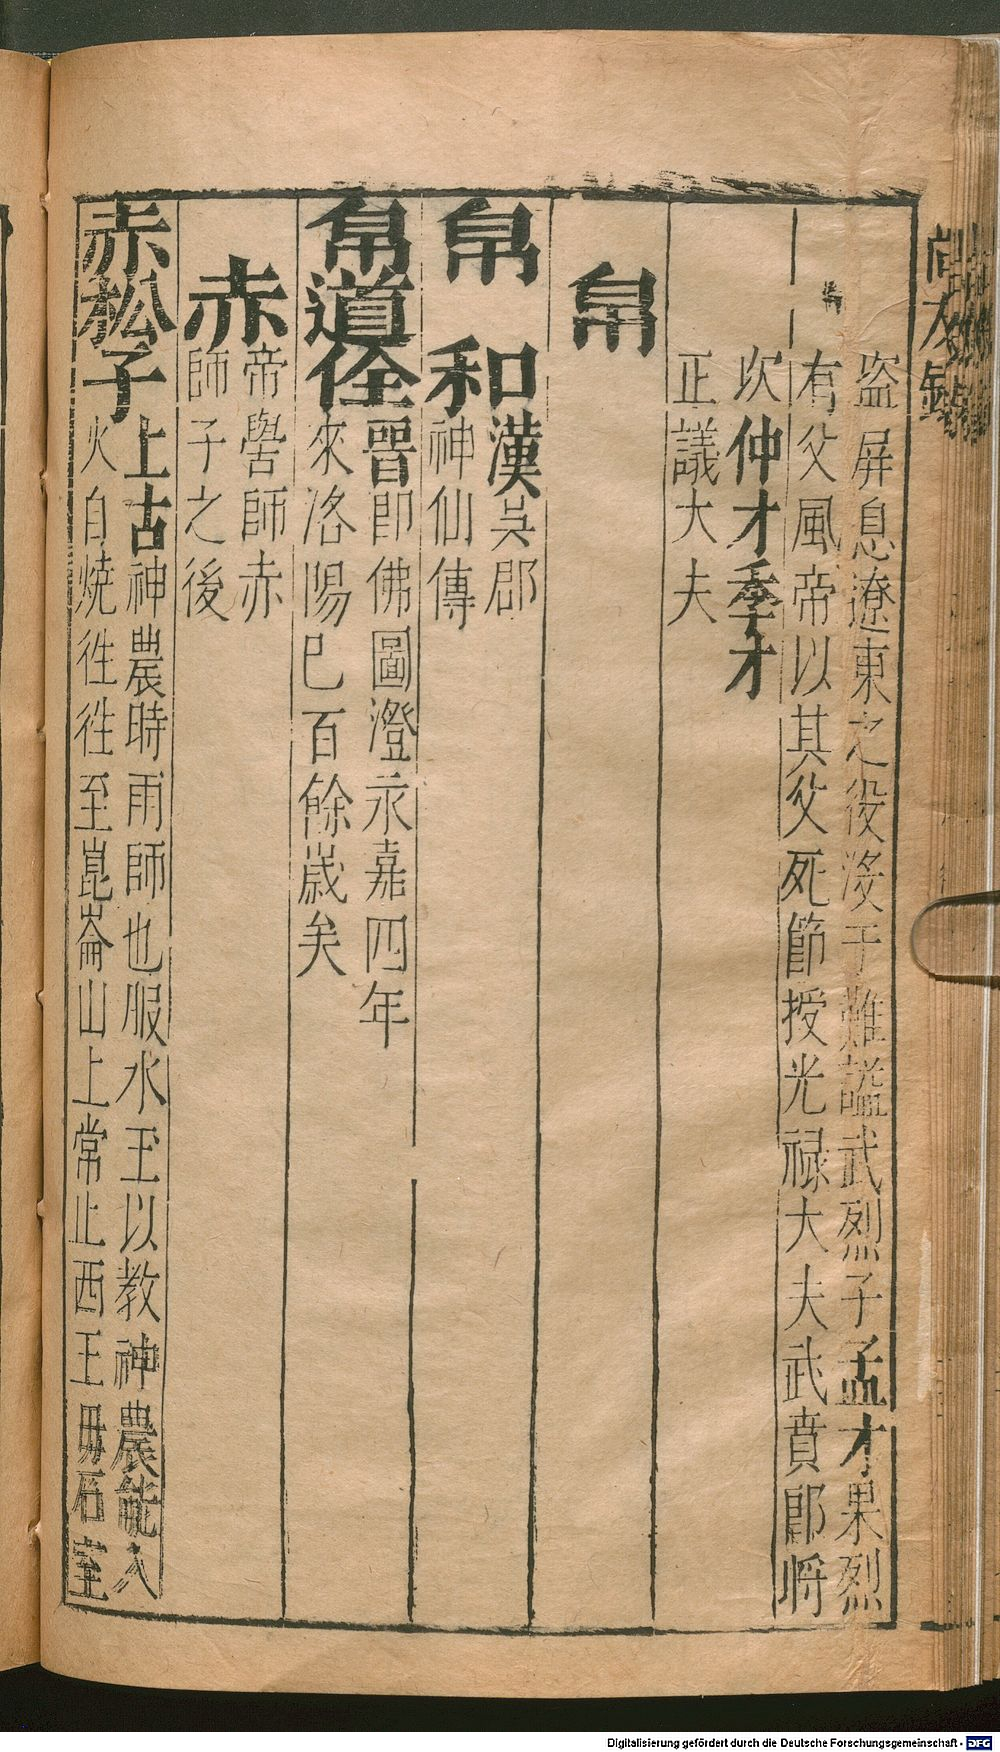 尚友錄
盜屏息遼東之役沒于難諡武烈子孟才果烈
有父風帝以其父死節授光禄大夫武賁郎將
次仲才季才
正議大夫
帛
帛和漢吳郡
神仙傳
帛道佺晉即佛圖澄永嘉四年
來洛陽巳百餘歲矣
赤帝嚳師赤
師子之後
赤松子上古神農時雨師也服水玉以教神農能入
火自燒徃徃至崑崙山上常止西王毋石室
Digitalisierung gefördert durch die Deutsche Forschungsgemeinschaft - DFG